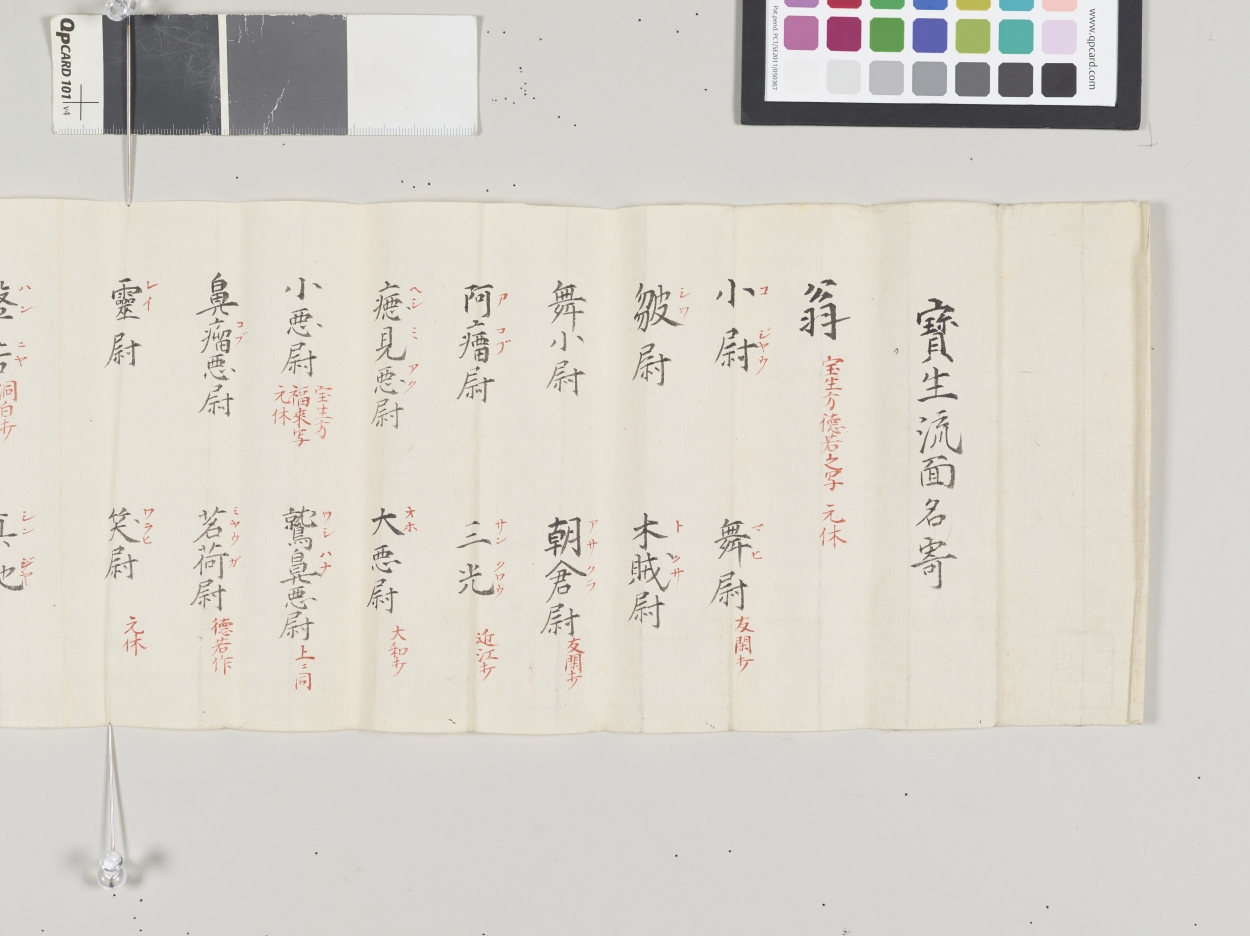 寳生流面名寄
翁 宝生方徳若之写 元休
小尉 コ ジヤウ
舞尉 マヒ 友閑打
皱尉 シワ
木賊尉 トクサ
舞小尉
朝倉尉 アサクラ 友閑打
阿瘤尉 アコブ
三光 サンクロウ 近江打
癋見悪尉 ヘシミアク
大悪尉 オホ 大和打
小悪尉 宝生方福来写元休
鷲鼻悪尉 ワシハナ 上ニ同
鼻瘤悪尉 コブ
茗荷尉 ミヤウガ 徳若作
靈尉 レイ
笑尉 ワラヒ 元休
ハンニヤ 洞白打
シンジヤ
QPCARD 101 v4
Pat.pend. PCT/SE2011/050367
www.qpcard.com